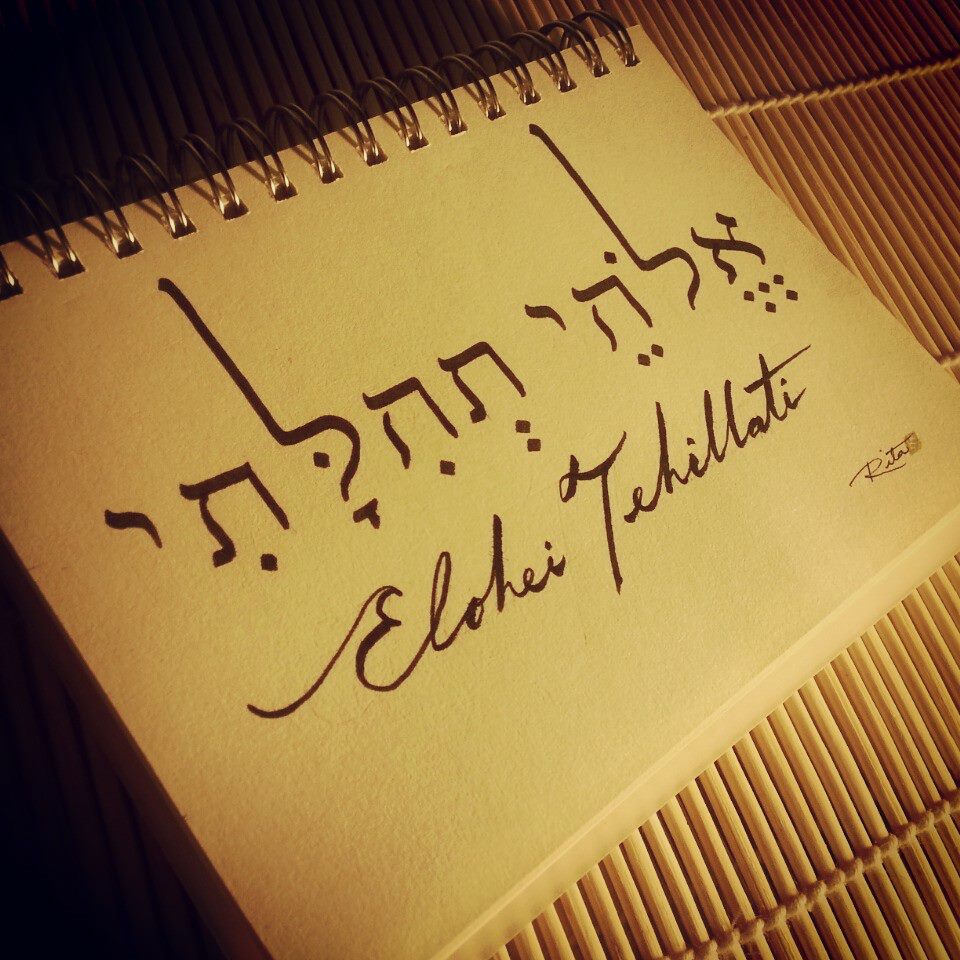 אֱלֹהֵי תְהִלָּתִי
Elohei Tehillati
Rita